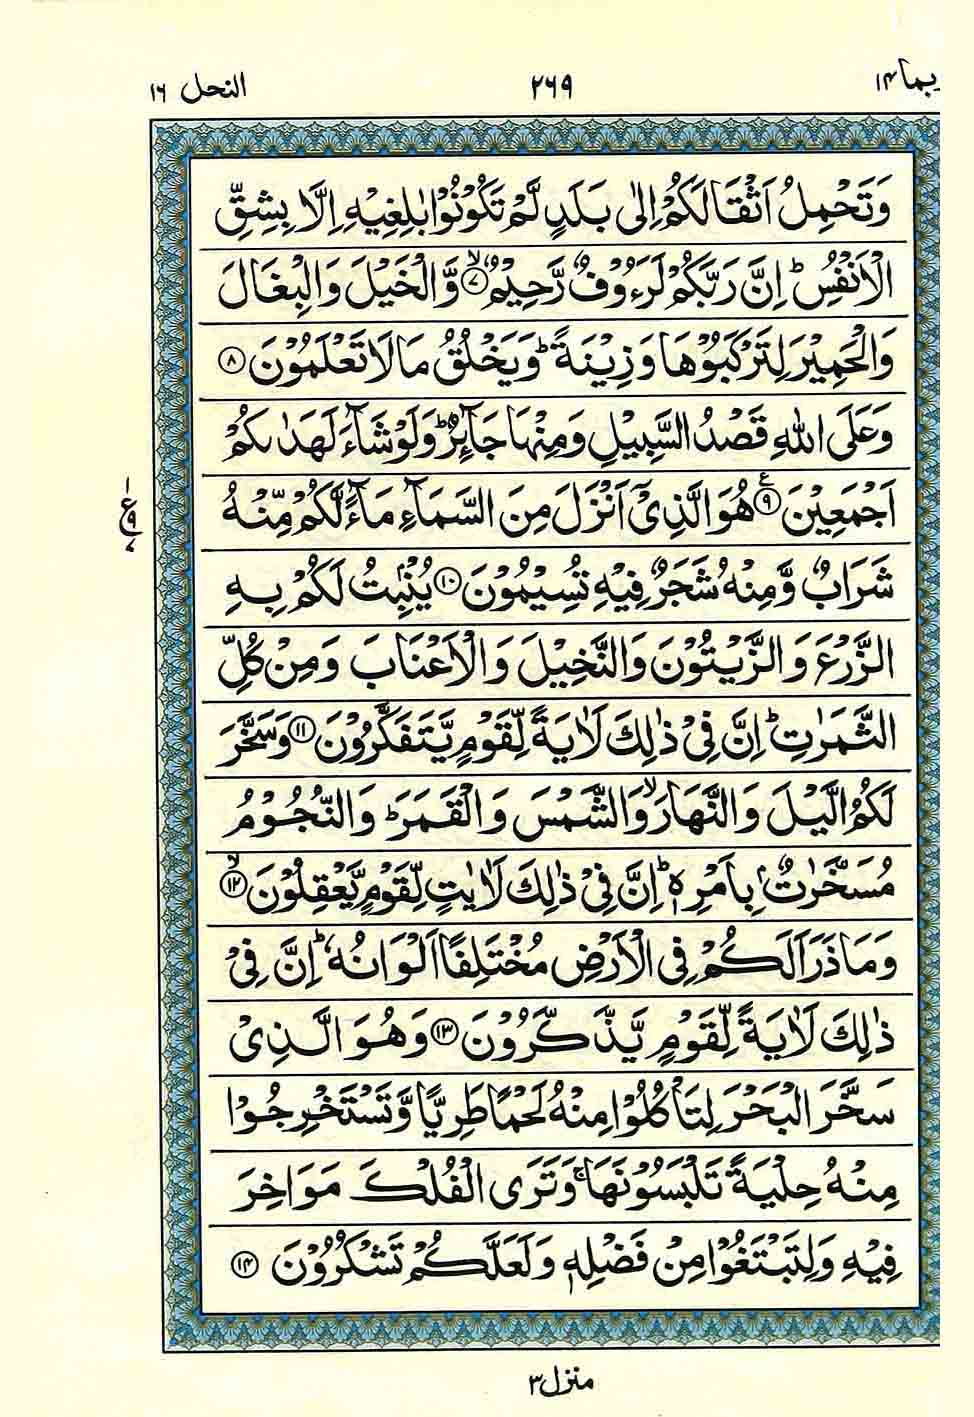 ربما ١٤
٢٦٩
النحل ١٦
وَتَحْمِلُ اَثْقَالَكُمْ اِلٰى بَلَدٍ لَّمْ تَكُوْنُوْا بٰلِغِيْهِ اِلَّا بِشِقِّ
الْاَنْفُسِ ؕ اِنَّ رَبَّكُمْ لَرَءُوْفٌ رَّحِيْمٌ ۙ﴿۷﴾ وَّالْخَيْلَ وَالْبِغَالَ
وَالْحَمِيْرَ لِتَرْكَبُوْهَا وَزِيْنَةً ؕ وَيَخْلُقُ مَا لَا تَعْلَمُوْنَ ﴿۸﴾
وَعَلَى اللّٰهِ قَصْدُ السَّبِيْلِ وَمِنْهَا جَآئِرٌ ؕ وَلَوْ شَآءَ لَهَدٰىكُمْ
اَجْمَعِيْنَ ﴿۹﴾ هُوَ الَّذِىْۤ اَنْزَلَ مِنَ السَّمَآءِ مَآءً لَّكُمْ مِّنْهُ
شَرَابٌ وَّمِنْهُ شَجَرٌ فِيْهِ تُسِيْمُوْنَ ﴿۱۰﴾ يُنْۢبِتُ لَكُمْ بِهِ
الزَّرْعَ وَالزَّيْتُوْنَ وَالنَّخِيْلَ وَالْاَعْنَابَ وَمِنْ كُلِّ
الثَّمَرٰتِ ؕ اِنَّ فِىْ ذٰلِكَ لَاٰيَةً لِّقَوْمٍ يَّتَفَكَّرُوْنَ ﴿۱۱﴾ وَسَخَّرَ
لَكُمُ الَّيْلَ وَالنَّهَارَ ۙ وَالشَّمْسَ وَالْقَمَرَ ؕ وَالنُّجُوْمُ
مُسَخَّرٰتٌۢ بِاَمْرِهٖ ؕ اِنَّ فِىْ ذٰلِكَ لَاٰيٰتٍ لِّقَوْمٍ يَّعْقِلُوْنَ ۙ﴿۱۲﴾
وَمَا ذَرَاَ لَكُمْ فِى الْاَرْضِ مُخْتَلِفًا اَلْوَانُهٗ ؕ اِنَّ فِىْ
ذٰلِكَ لَاٰيَةً لِّقَوْمٍ يَّذَّكَّرُوْنَ ﴿۱۳﴾ وَهُوَ الَّذِىْ
سَخَّرَ الْبَحْرَ لِتَاْكُلُوْا مِنْهُ لَحْمًا طَرِيًّا وَّتَسْتَخْرِجُوْا
مِنْهُ حِلْيَةً تَلْبَسُوْنَهَا ۚ وَتَرَى الْفُلْكَ مَوَاخِرَ
فِيْهِ وَلِتَبْتَغُوْا مِنْ فَضْلِهٖ وَلَعَلَّكُمْ تَشْكُرُوْنَ ﴿۱۴﴾
منزل ٣